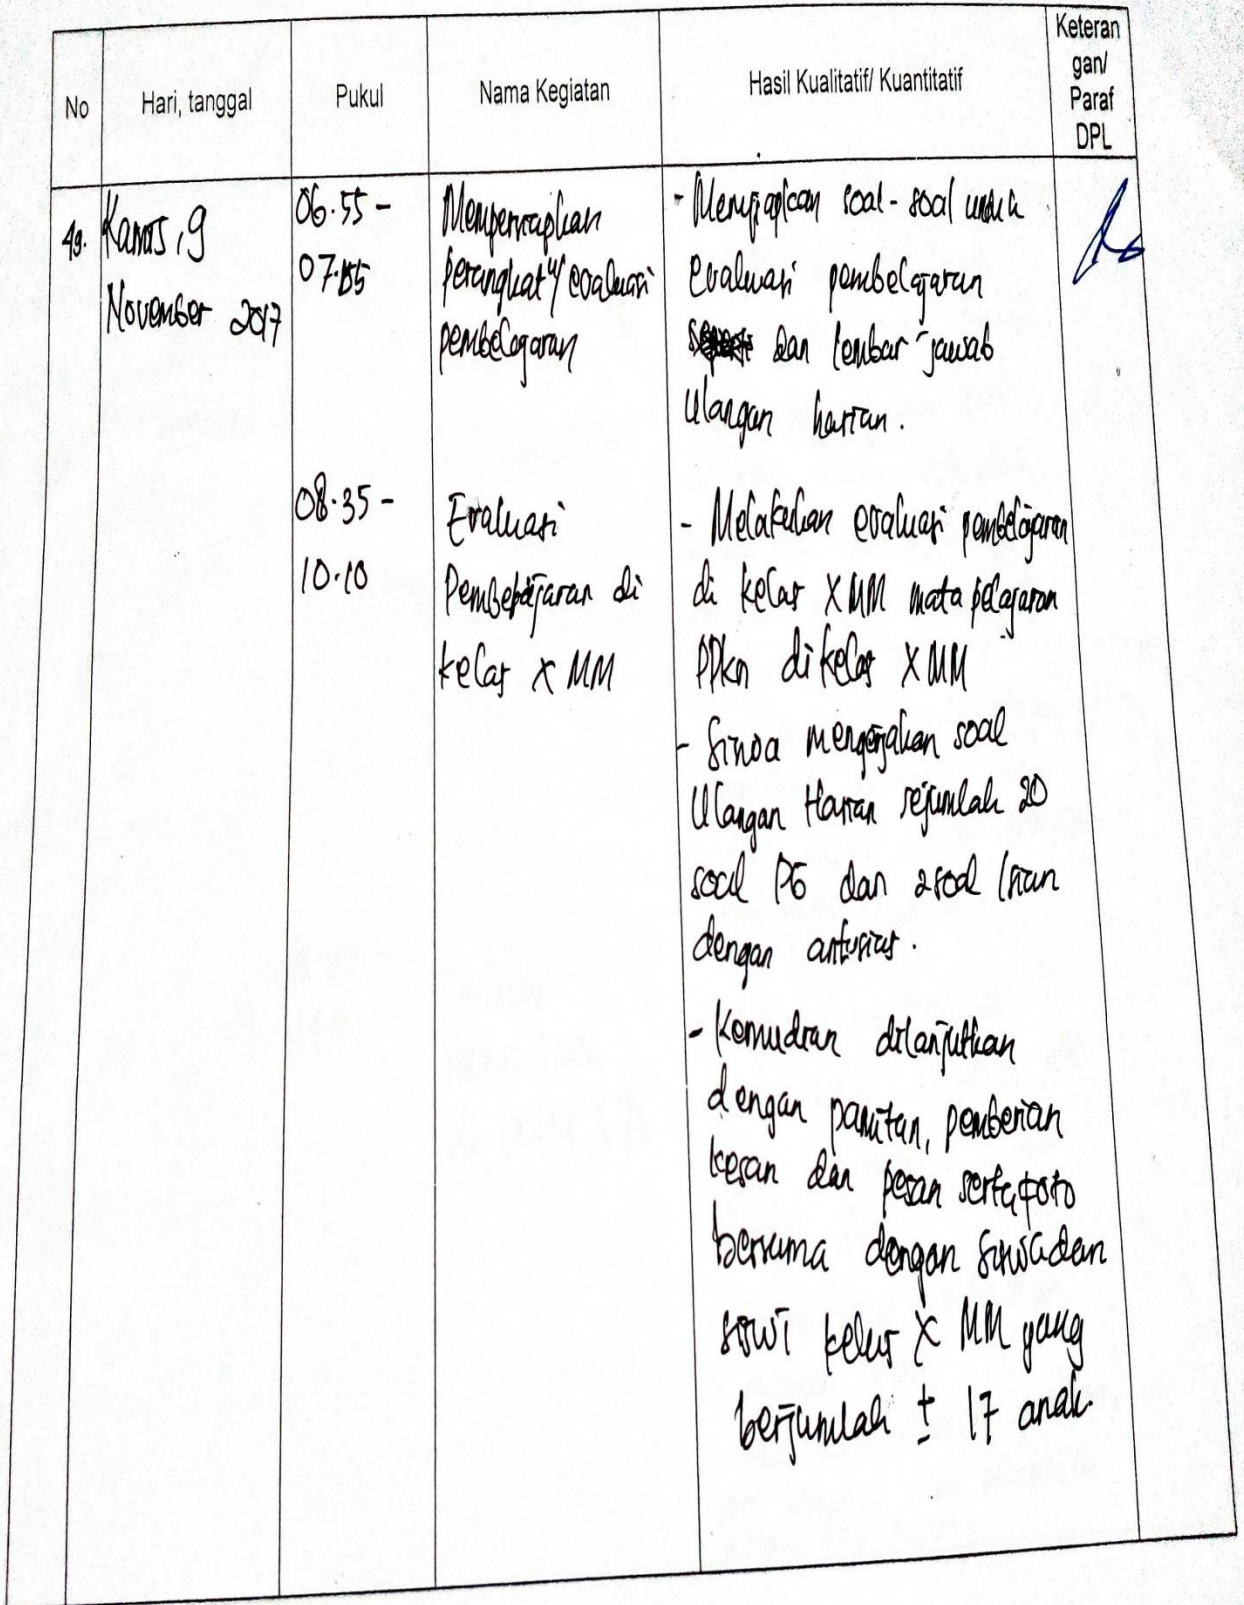 No
Hari, tanggal
Pukul
Nama Kegiatan
Hasil Kualitatif/ Kuantitatif
Keteran
gan/
Paraf
DPL
49.
Kamis, 9
November 2017
06.55 -
07.55
Mempersiapkan
perangkat u/ evaluasi
pembelajaran
- Menyiapkan soal-soal untuk
evaluasi pembelajaran
dan lembar jawab
Ulangan harian.
08.35 -
10.10
Evaluasi
Pembelajaran di
kelas X MM
- Melakukan evaluasi pembelajaran
di kelas X MM mata pelajaran
PPkn di kelas X MM
- Siswa mengerjakan soal
Ulangan Harian sejumlah 20
soal PG dan 2 soal isian
dengan antusias.
- Kemudian dilanjutkan
dengan pamitan, pemberian
kesan dan pesan serta foto
bersama dengan siswa dan
siswi kelas X MM yang
berjumlah ± 17 anak.